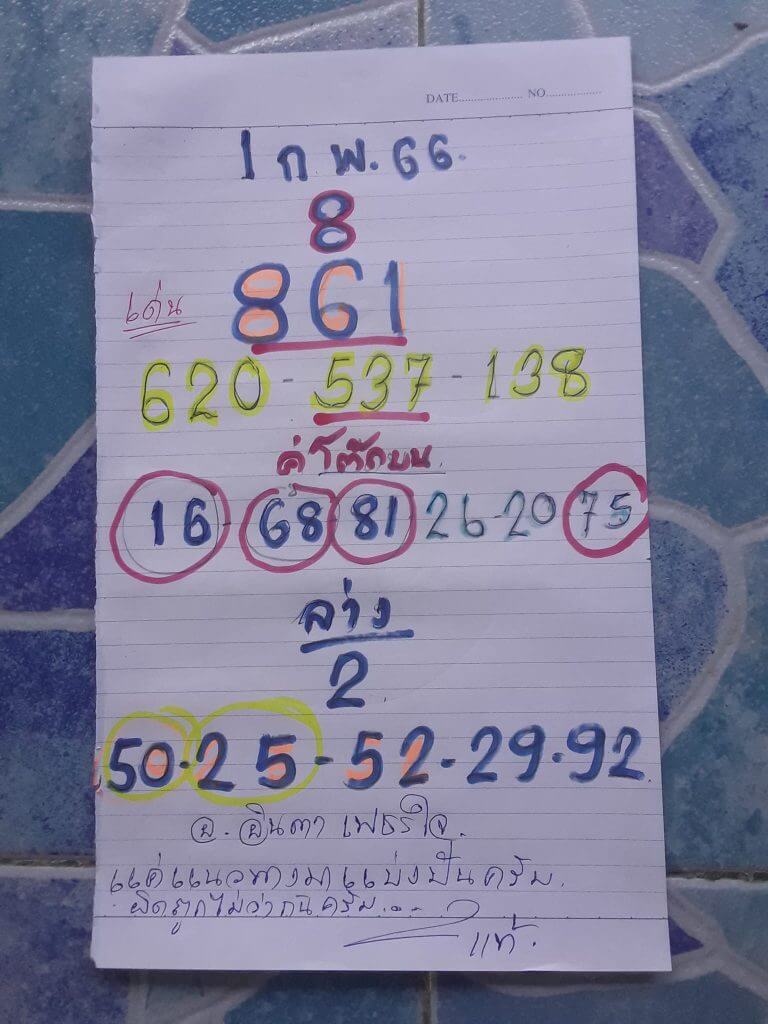 DATE..................... NO..................
1 ก พ. 66.
8
861
เด่น
620 - 537 - 138
คู่โต๊ดบน
16 - 68 - 81 - 26 - 20 75
ล่าง
2
50 - 25 - 52 - 29 - 92
อ. อินตา เพชรใจ.
แค่แนวทางมาแบ่งปันครับ.
ผิดถูกไม่ว่ากันครับ...
แท้.